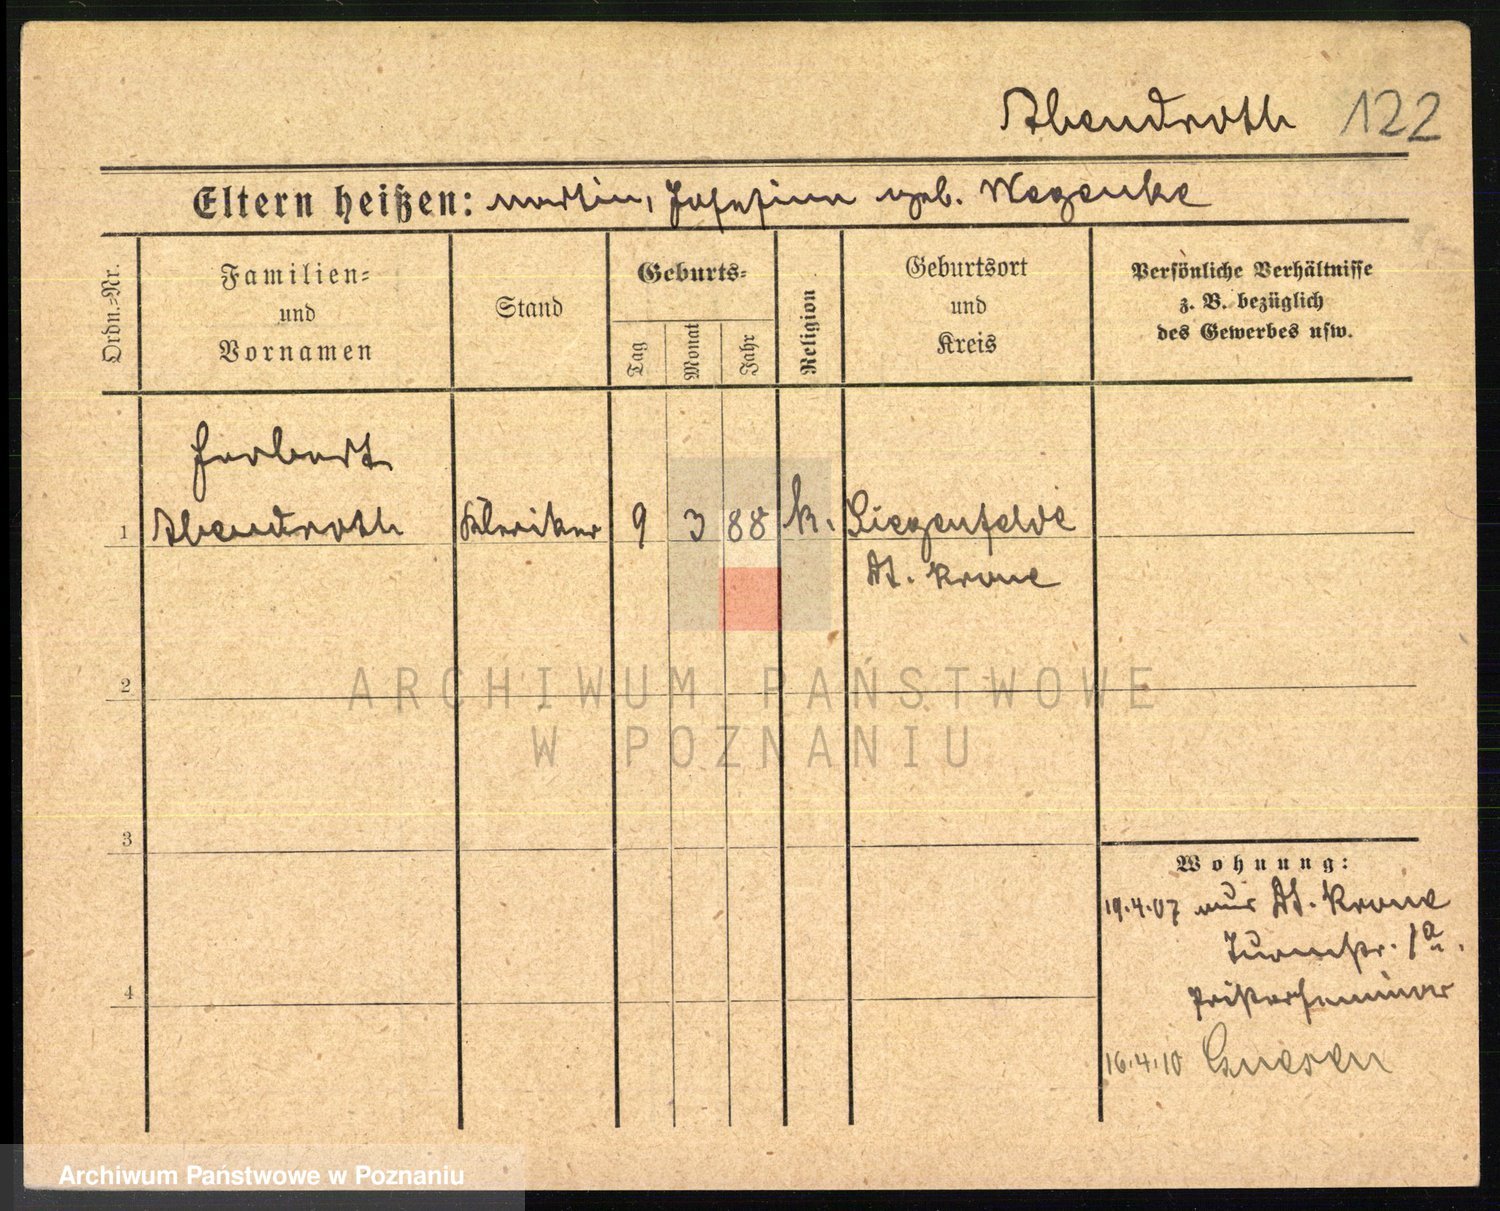 Abendroth 122
Eltern heißen: Martin, Josefine geb. Wegenke
Ordn.-Nr.
Familien-
und
Vornamen
Stand
Geburts-
Tag
Monat
Jahr
Religion
Geburtsort
und
Kreis
Persönliche Verhältnisse
z. B. bezüglich
des Gewerbes usw.
Herbert
1 Abendroth Kleriker 9 3 88 k. Ziegenfelde
Dt. Krone
ARCHIWUM PAŃSTWOWE
W POZNANIU
2
3
4
Wohnung:
19.4.07 aus Dt. Krone
Turmstr. 1a
Priesterseminar
16.4.10 Gnesen
Archiwum Państwowe w Poznaniu